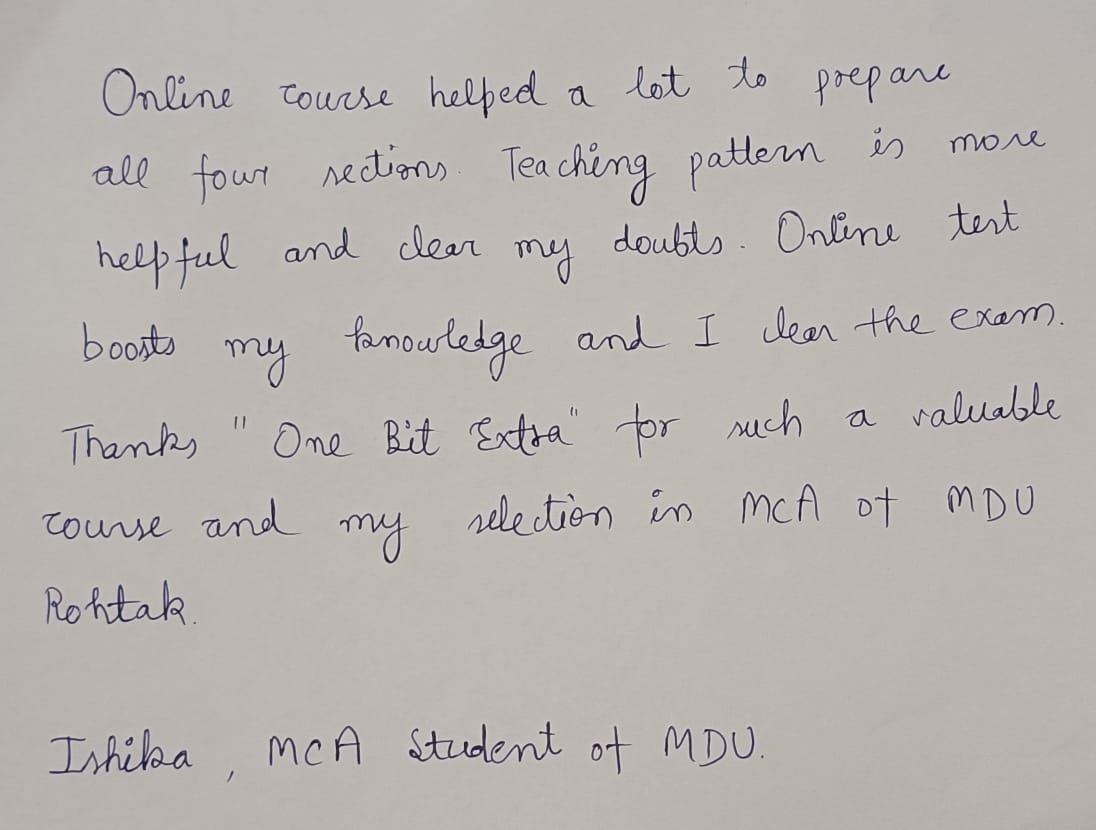 Online course helped a lot to prepare
all four sections. Teaching pattern is more
helpful and clear my doubts. Online test
boosts my knowledge and I clear the exam.
Thanks "One Bit Extra" for such a valuable
course and my selection in MCA of MDU
Rohtak.
Ishika, MCA Student of MDU.